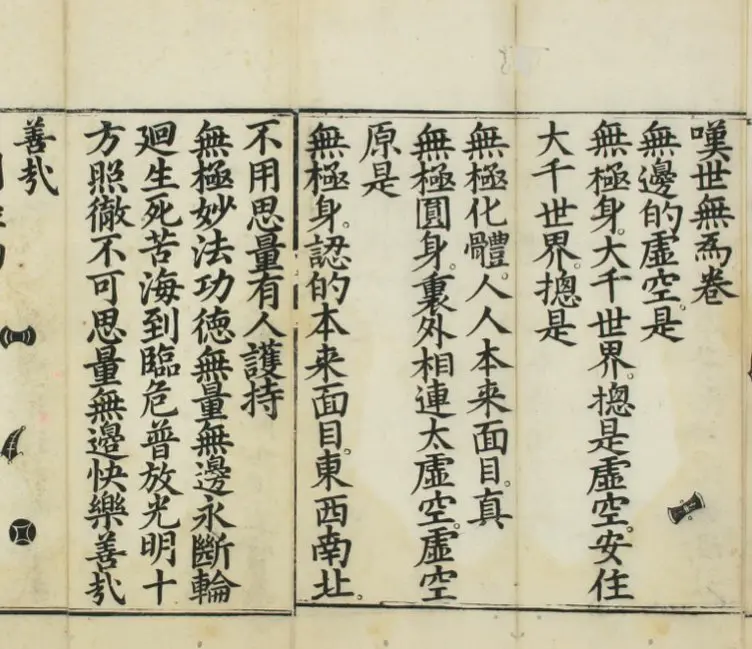 嘆世無為卷
無邊的虛空。是
無極身。大千世界。摠是虛空。安住
大千世界。摠是
無極化體。人人本来面目。真
無極圓身。裏外相連太虛空。虛空
原是
無極身。認的本来面目。東西南北。
不用思量有人護持
無極妙法功德無量無邊永斷輪
廻生死苦海到臨危普放光明十
方照徹不可思量無邊快樂善㢤
善㢤